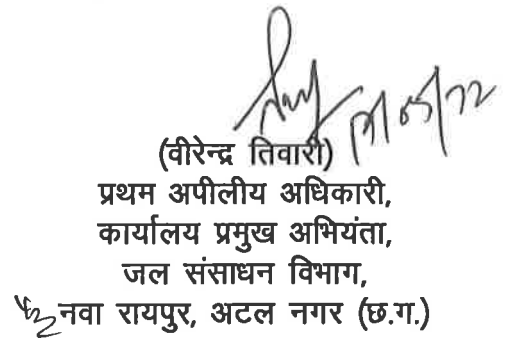 (वीरेन्द्र तिवारी)
प्रथम अपीलीय अधिकारी,
कार्यालय प्रमुख अभियंता,
जल संसाधन विभाग,
नवा रायपुर, अटल नगर (छ.ग.)